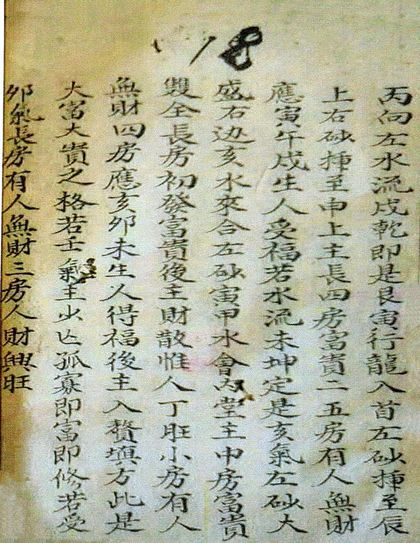 18
丙向左水流戌乾即是艮寅行龍入首左砂揷至辰
上右砂揷至申上主長四房富貴二五房有人無財
應寅午戌生人受福若水流未坤定是亥氣左砂大
盛右边亥水來合左砂寅甲水會內堂主中房富貴
雙全長房初發富貴後主財散惟人丁旺小房有人
無財四房應亥卯未生人得福後主入贅填方此是
大富大貴之格若壬氣主少亡孤寡即富即修若受
卯氣長房有人無財三房人財興旺